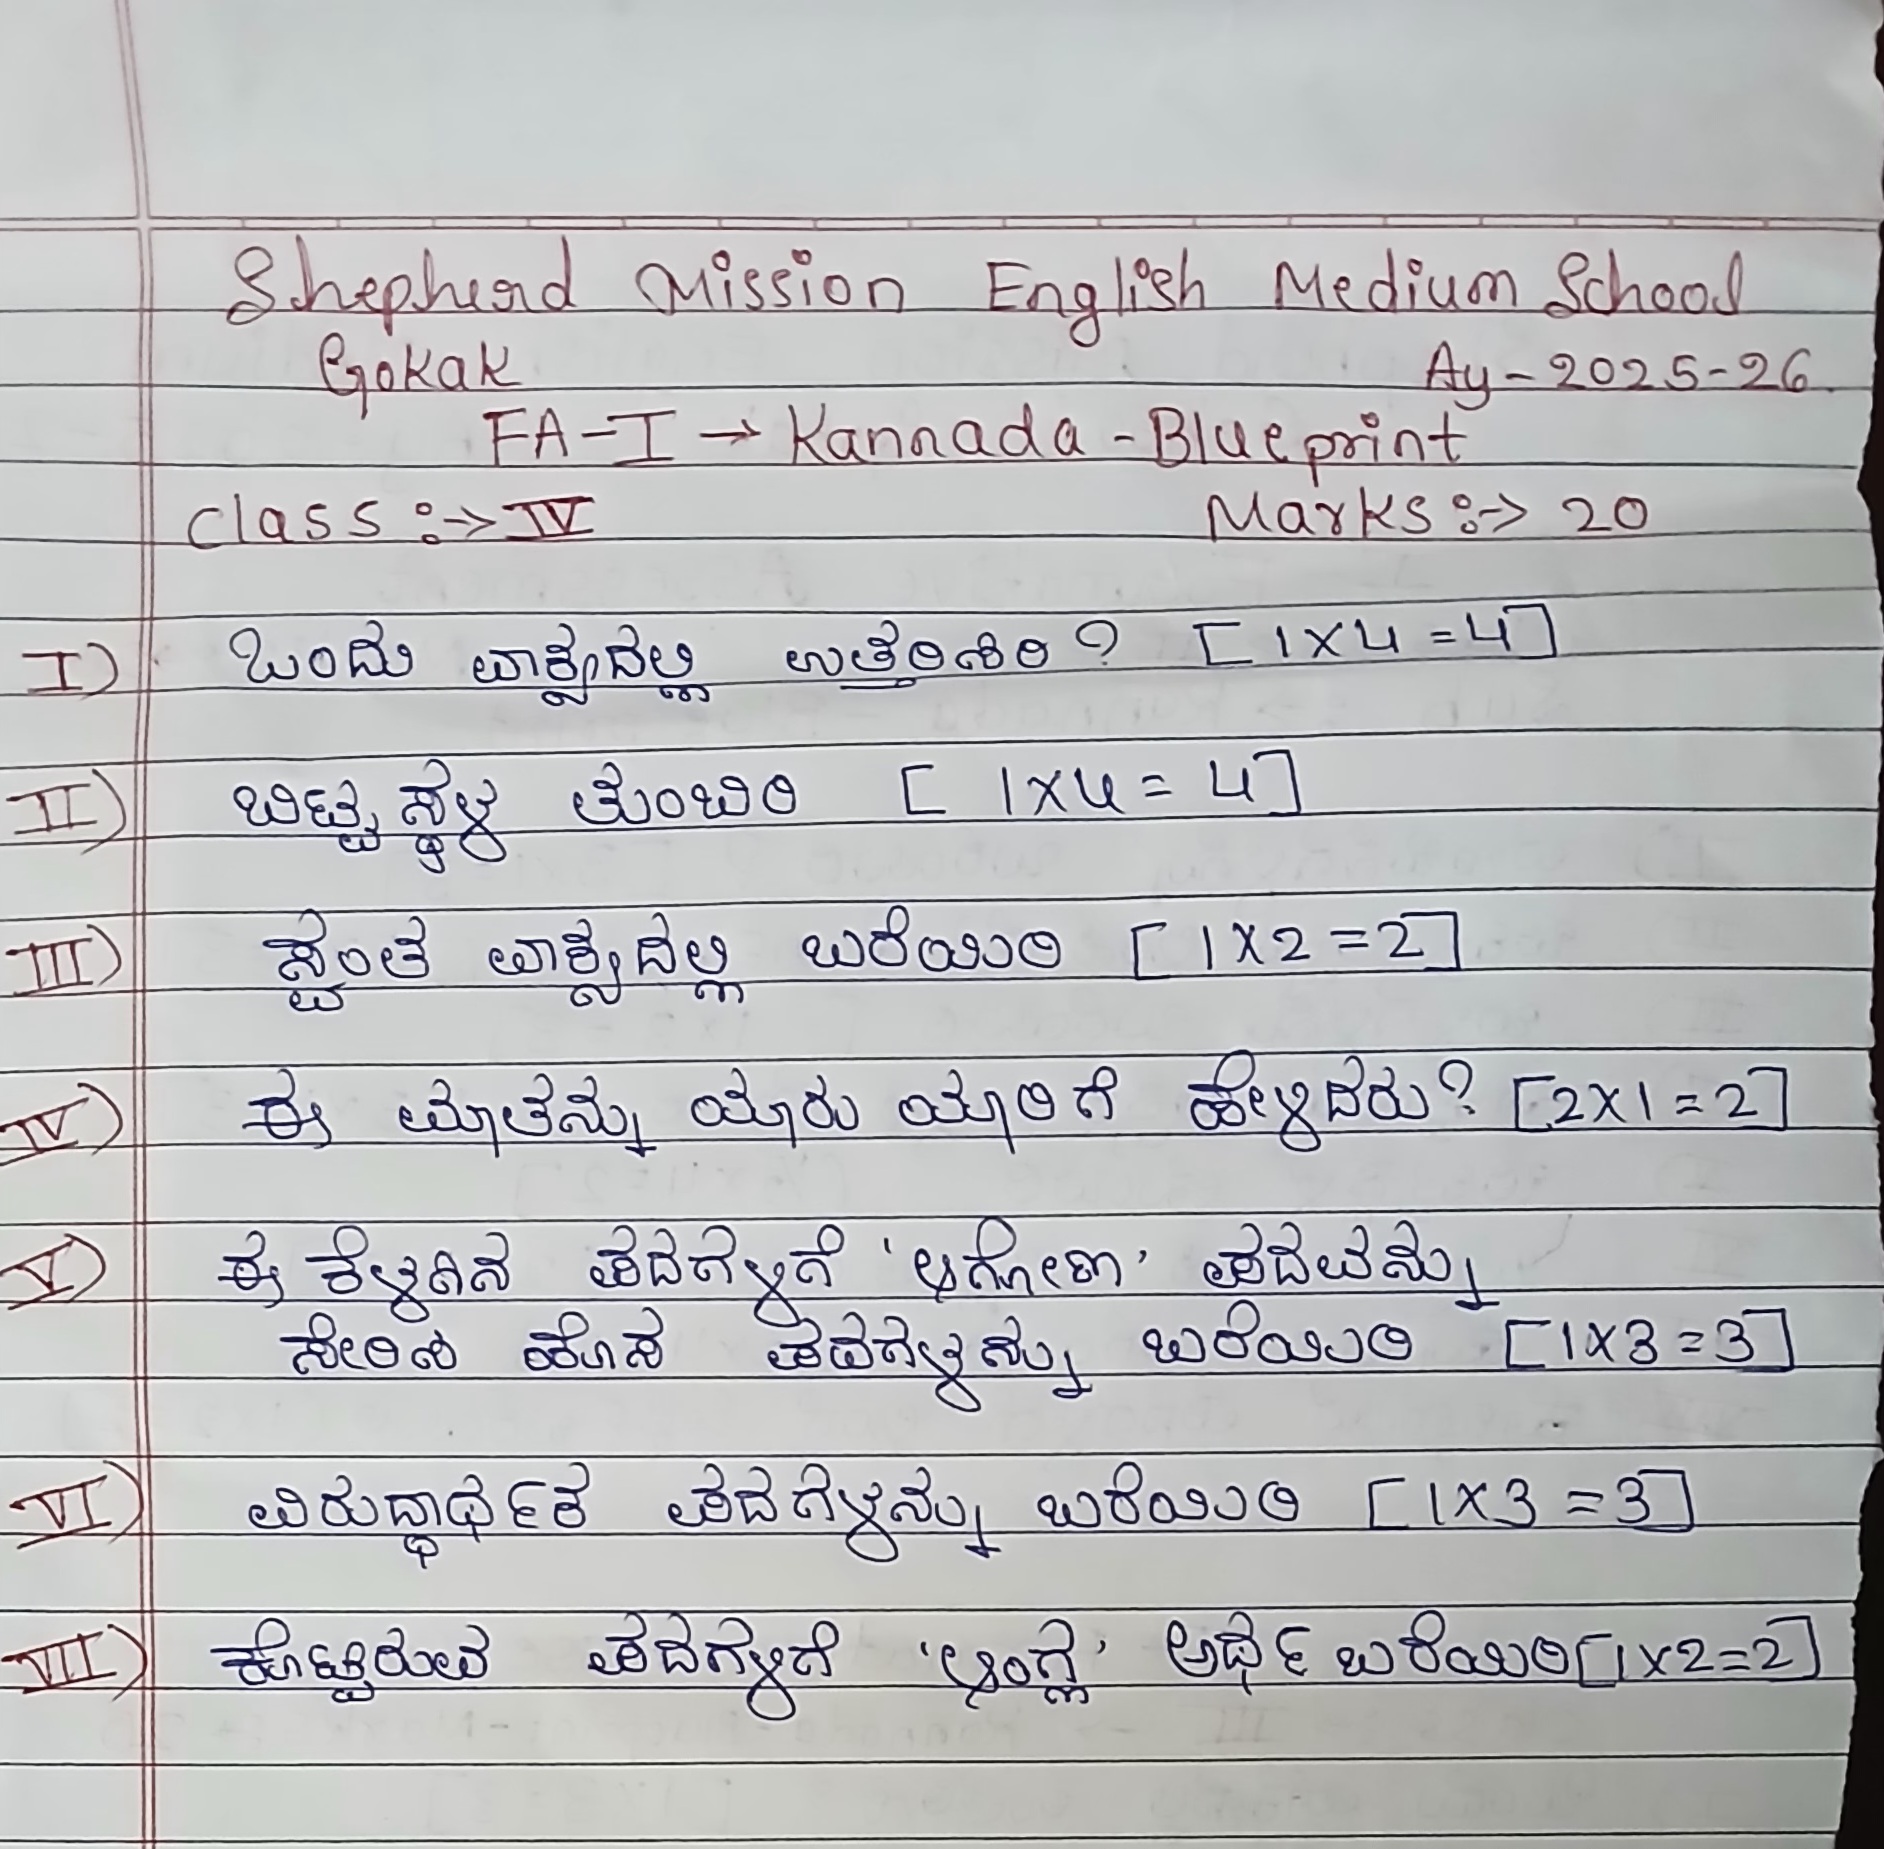 Shepherd Mission English Medium School
Gokak Ay-2025-26
FA-I → Kannada - Blueprint
Class :-> IV Marks :-> 20
I) ಒಂದು ವಾಕ್ಯದಲ್ಲಿ ಉತ್ತರಿಸಿರಿ? [1×4=4]
II) ಬಿಟ್ಟ ಸ್ಥಳ ತುಂಬಿರಿ [1×4=4]
III) ಸ್ವಂತ ವಾಕ್ಯದಲ್ಲಿ ಬರೆಯಿರಿ [1×2=2]
IV) ಈ ಮಾತನ್ನು ಯಾರು ಯಾರಿಗೆ ಹೇಳಿದರು? [2×1=2]
V) ಈ ಕೆಳಗಿನ ಪದಗಳಿಗೆ ' ' ಪದವನ್ನು
ಸೇರಿಸಿ ಹೊಸ ಪದಗಳನ್ನು ಬರೆಯಿರಿ [1×3=3]
VI) ವಿರುದ್ಧಾರ್ಥಕ ಪದಗಳನ್ನು ಬರೆಯಿರಿ [1×3=3]
VII) ಕೊಟ್ಟಿರುವ ಪದಗಳಿಗೆ 'ಆಂಗ್ಲ' ಅರ್ಥ ಬರೆಯಿರಿ [1×2=2]